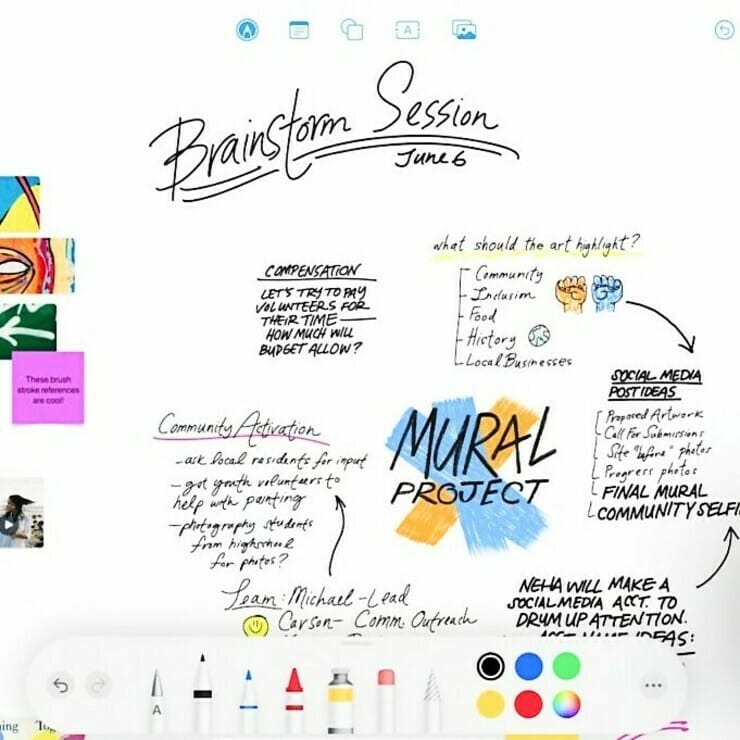 Brainstorm Session
June 6
what should the art highlight?
Community
Inclusion
Food
History
Local Businesses
COMPENSATION
LET'S TRY TO PAY
VOLUNTEERS FOR
THEIR TIME —
HOW MUCH WILL
BUDGET ALLOW?
These brush
stroke references
are cool!
SOCIAL MEDIA
POST IDEAS
Proposed Artwork
Call For Submissions
Site "before" photos
Progress photos
FINAL MURAL
COMMUNITY SELFI
Community Activation
- ask local residents for input
- got youth volunteers to
help with painting
- photography students
from highschool
for photos?
MURAL
PROJECT
Team: Michael - Lead
Carson - Comm. Outreach
NEHA WILL MAKE A
SOCIAL MEDIA ACCT. TO
DRUM UP ATTENTION.
ACCT NAME IDEAS:
A
A